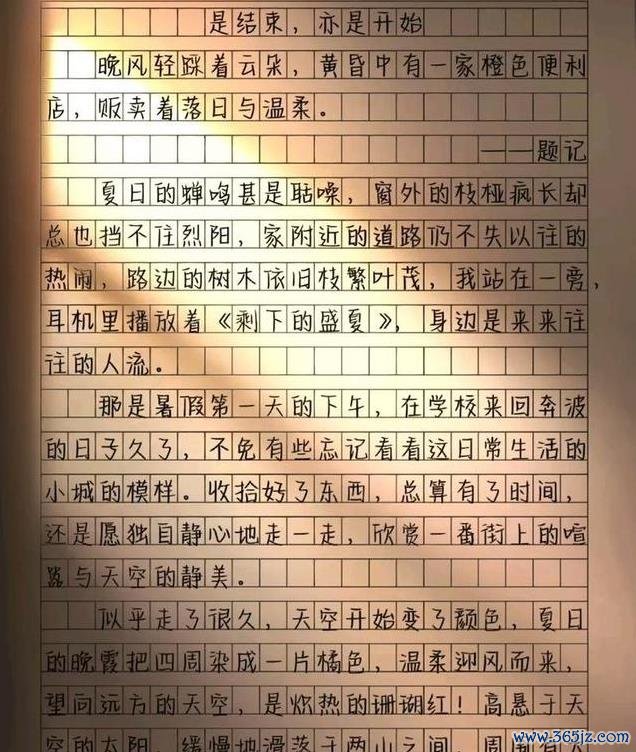 是结束，亦是开始
晚风轻踩着云朵，黄昏中有一家橙色便利
店，贩卖着落日与温柔。
——题记
夏日的蝉鸣甚是聒噪，窗外的枝桠疯长却
总也挡不住烈阳，家附近的道路仍不失以往的
热闹，路边的树木依旧枝繁叶茂，我站在一旁，
耳机里播放着《剩下的盛夏》，身边是来来往
往的人流。
那是暑假第一天的下午，在学校来回奔波
的日子久了，不免有些忘记看看这日常生活的
小城的模样。收拾好了东西，总算有了时间，
还是愿独自静心地走一走，欣赏一番街上的喧
嚣与天空的静美。
似乎走了很久，天空开始变了颜色，夏日
的晚霞把四周染成一片橘色，温柔迎风而来，
望向远方的天空，是炽热的珊瑚红！高悬于天
空的太阳，缓慢地滑落于两山之间，周
www.365jz.com